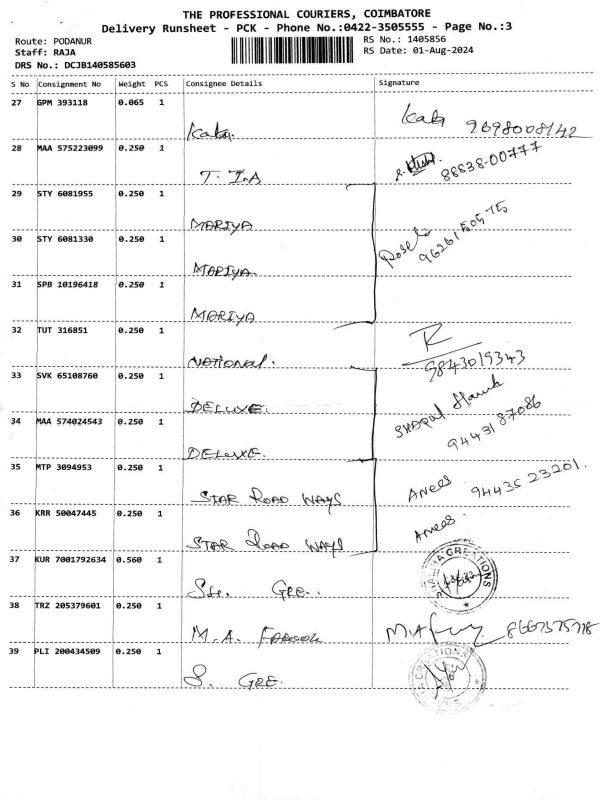 THE PROFESSIONAL COURIERS, COIMBATORE
Delivery Runsheet - PCK - Phone No.:0422-3505555 - Page No.:3
Route: PODANUR
Staff: RAJA
DRS No.: DCJB140585603
RS No.: 1405856
RS Date: 01-Aug-2024
S No Consignment No Weight PCS Consignee Details Signature
27 GPM 393118 0.065 1
28 MAA 575223099 0.250 1 T. I.A 88838-00777
29 STY 6081955 0.250 1 MARIYA
30 STY 6081330 0.250 1 MARIYA
31 SPB 10196418 0.250 1 MARIYA
32 TUT 316851 0.250 1 NATIONAL. 9843019343
33 SVK 65108760 0.250 1 DELUXE.
34 MAA 574024543 0.250 1 DELUXE. 9443187086
35 MTP 3094953 0.250 1 STAR ROAD WAYS Anees 94435 23201.
36 KRR 50047445 0.250 1 STAR ROAD WAYS Anees.
37 KUR 7001792634 0.560 1 GRE.. CREATIONS
38 TRZ 205379601 0.250 1 M.A. FAROOK
39 PLI 200434509 0.250 1 S. GRE.